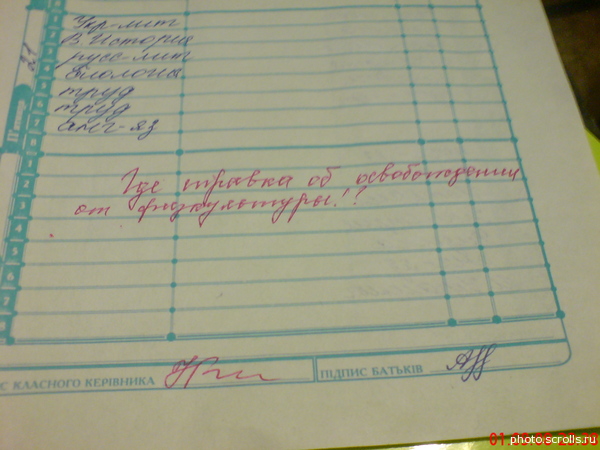 Укр-лит
В История
русс-лит
биология
труд
труд
англ-яз
21
П'ятниця
1
2
3
4
5
6
7
8
1
2
3
4
5
6
7
8
Где справка об освобождении
от физкультуры!!?
С КЛАСНОГО КЕРІВНИКА
ПІДПИС БАТЬКІВ
photo.scrolls.ru